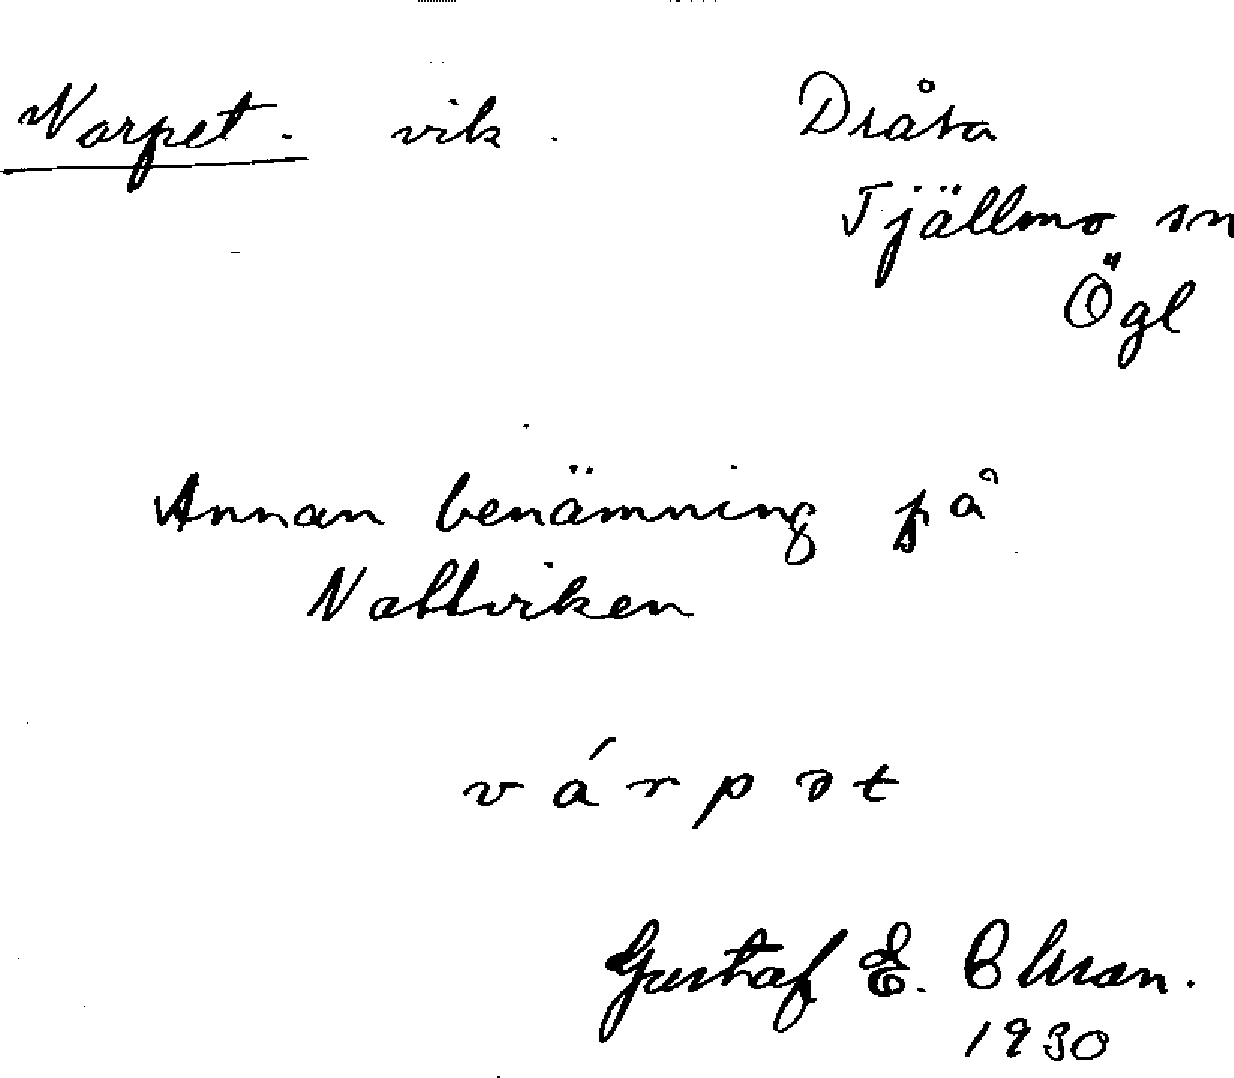 Varpet. vik. Dråsa
Tjällmo sn
Ögl
Annan benämning på
Vallviken
v á r p ə t
Gustaf E.
1930